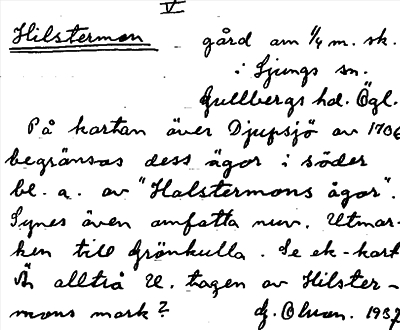 V
Hilstermon gård om 1/4 m. sk.
i Ljungs sn.
Gullbergs hd. Ögl.
På kartan över Djupsjö av 1706
begränsas dess ägor i söder
bl. a. av "Halstermons ågor".
Synes även omfatta nuv. Utmar-
ken till Grönkulla. Se ek-kart
Är alltså U. tagen av Hilster-
mons mark? G. 1937